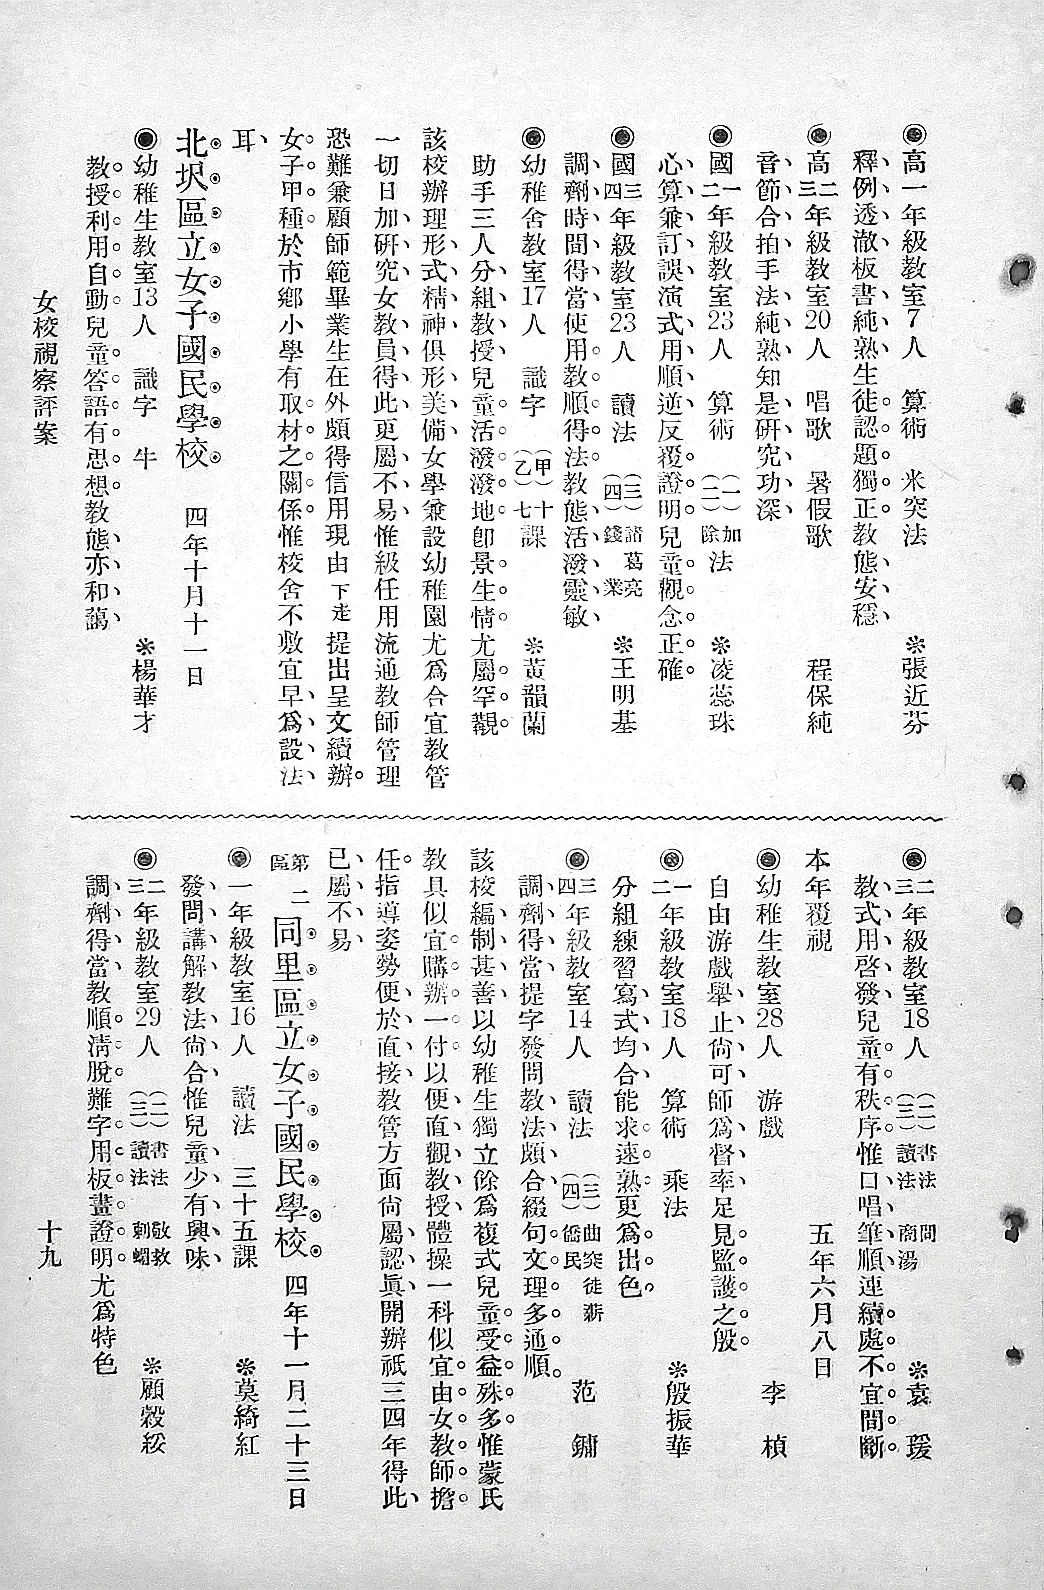 ◉高一年級教室7人　算術　米突法　※張近芬
釋例、透澈、板書純熟、生徒認題獨正、教態安穩、
◉高二三年級教室20人　唱歌　暑假歌　程保純
音節合拍、手法純熟、知是研究功深、
◉國一二年級教室23人　算術　(一)加(二)除法　※凌蕊珠
心算兼訂誤演式、用順逆反覆證明、兒童觀念正確。
◉國三四年級教室23人　讀法　(三)諸葛亮(四)錢業　※王明基
調劑時間得當、使用教順得法。教態活潑靈敏、
◉幼稚舍教室17人　識字　(甲)十(乙)七課　※黃韻蘭
助手三人、分組教授、兒童活潑潑地、卽景生情、尤屬罕覯。
該校辦理、形式精神俱形美備、女學兼設幼稚園尤爲合宜教管
一切日加研究、女教員得此更屬不易、惟級任用流通教師管理
恐難兼顧師範畢業生在外頗得信用現由下走提出呈文續辦。
女子甲種於市鄉小學有取材之關係。惟校舍不敷宜早爲設法、
耳、
北坼區立女子國民學校　四年十月十一日
◉幼稚生教室13人　識字　牛　※楊華才
教授利用自動、兒童答語有思想。教態亦和藹、
◉二三年級教室18人　(二)書法(三)讀法　問商湯　※袁瑗
教式用啓發、兒童有秩序。惟口唱筆順連續處不宜間斷。
本年覆視　五年六月八日
◉幼稚生教室28人　游戲　李楨
自由游戲、舉止尙可、師爲督率、足見監護之殷。
◉一二年級教室18人　算術　乘法　※殷振華
分組練習、寫式均合、能求速熟更爲出色。
◉三四年級教室14人　讀法　(三)曲突徙薪(四)僑民　范鏞
調劑得當、提字發問、教法頗合、綴句文理多通順。
該校編制甚善、以幼稚生獨立、餘爲複式、兒童受益殊多。惟蒙氏
教具似宜購辦一付以便直觀教授、體操一科似宜由女教師擔
任。指導姿勢便於直接、教管方面尙屬認眞、開辦祇三四年得此、
已屬不易、
第二區　同里區立女子國民學校　四年十一月二十三日
◉一年級教室16人　讀法　三十五課　※莫綺紅
發問講解、教法尙合、惟兒童少有興味、
◉二三年級教室29人　(二)書法(三)讀法　敬教刺蝟　※顧穀綏
調劑得當、教順淸脫。難字用板畫證明。尤爲特色
女校視察評案
十九